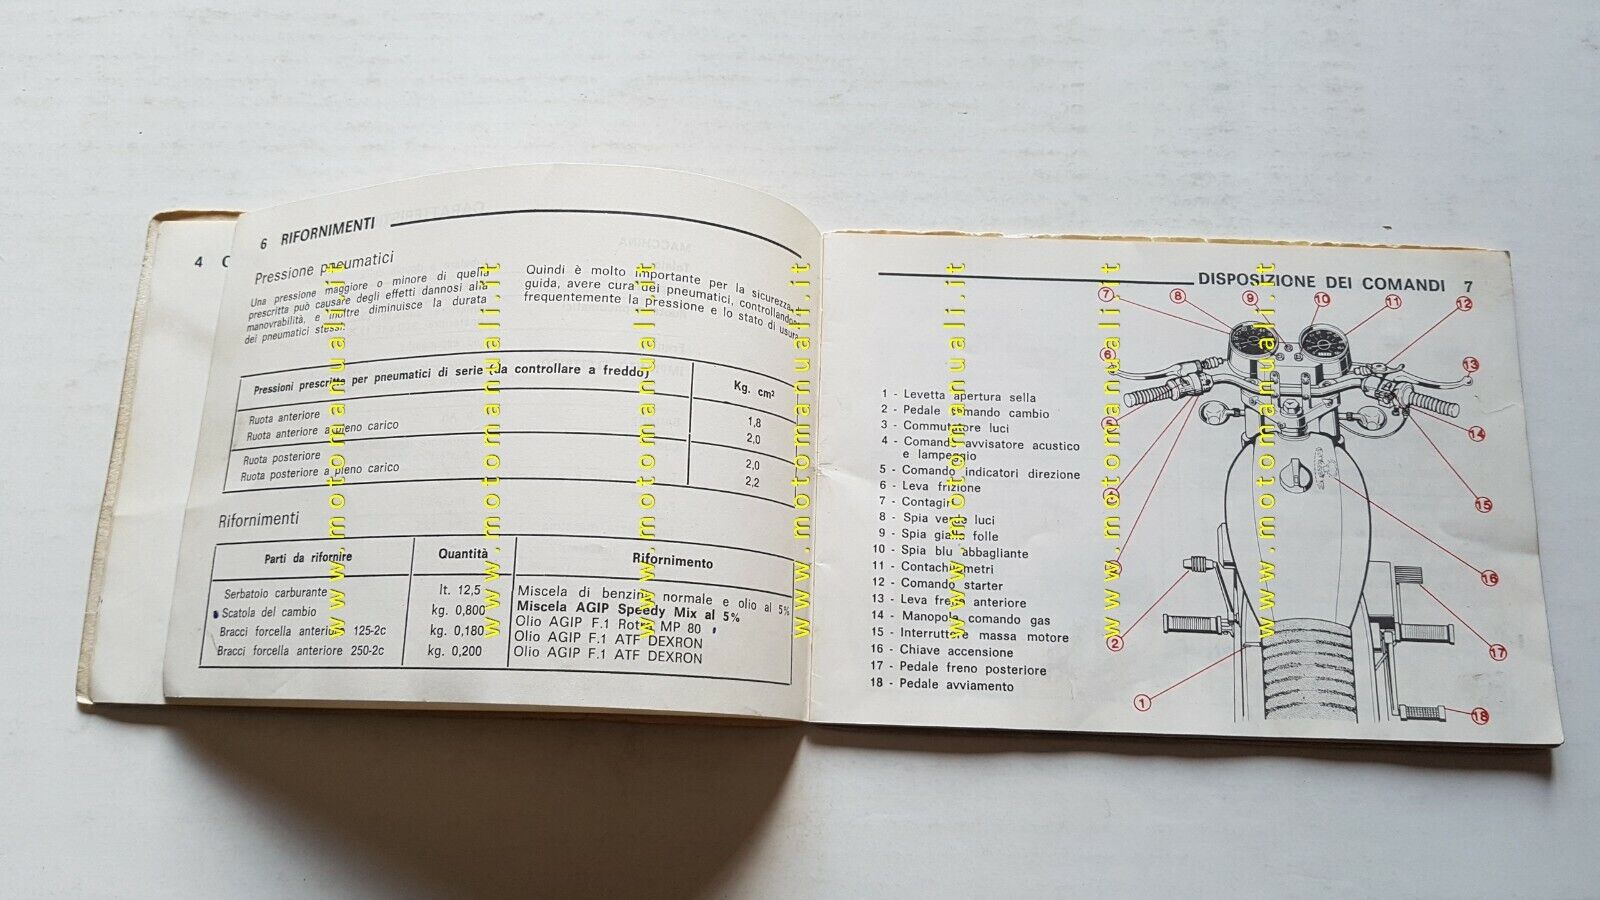 4
6 RIFORNIMENTI
Pressione pneumatici
Una pressione maggiore o minore di quella
prescritta può causare degli effetti dannosi alla
manovrabilità, e inoltre diminuisce la durata
dei pneumatici stessi.
Quindi è molto importante per la sicurezza
guida, avere cura dei pneumatici, controllandone
frequentemente la pressione e lo stato di usura
Pressioni prescritte per pneumatici di serie (da controllare a freddo)
Kg. cm²
Ruota anteriore 1,8
Ruota anteriore a pieno carico 2,0
Ruota posteriore 2,0
Ruota posteriore a pieno carico 2,2
Rifornimenti
Parti da rifornire Quantità Rifornimento
Serbatoio carburante lt. 12,5 Miscela di benzina normale e olio al 5%
Miscela AGIP Speedy Mix al 5%
Scatola del cambio kg. 0,800 Olio AGIP F.1 Rotra MP 80
Bracci forcella anteriore 125-2c kg. 0,180 Olio AGIP F.1 ATF DEXRON
Bracci forcella anteriore 250-2c kg. 0,200 Olio AGIP F.1 ATF DEXRON
DISPOSIZIONE DEI COMANDI 7
1 - Levetta apertura sella
2 - Pedale comando cambio
3 - Commutatore luci
4 - Comando avvisatore acustico
e lampeggio
5 - Comando indicatori direzione
6 - Leva frizione
7 - Contagiri
8 - Spia verde luci
9 - Spia gialla folle
10 - Spia blu abbagliante
11 - Contachilometri
12 - Comando starter
13 - Leva freno anteriore
14 - Manopola comando gas
15 - Interruttore massa motore
16 - Chiave accensione
17 - Pedale freno posteriore
18 - Pedale avviamento
7
8
9
10
11
12
6
13
5
14
4
15
3
16
2
17
1
18
www.motomanuali.it
www.motomanuali.it
www.motomanuali.it
www.motomanuali.it
www.motomanuali.it
www.motomanuali.it
www.motomanuali.it